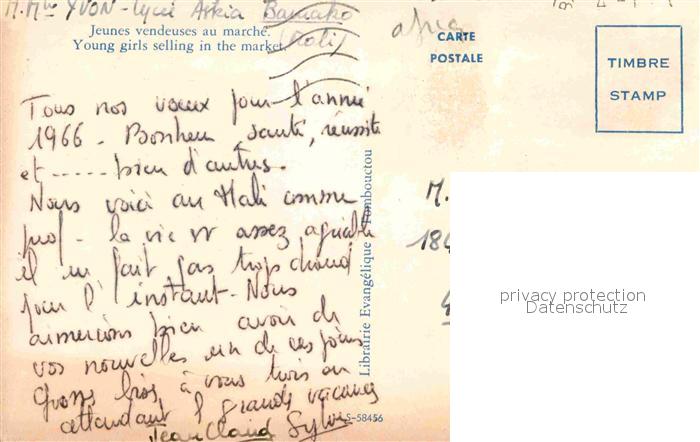 M. Mme YVON - Lycée Askia Bamako
(Mali)
Jeunes vendeuses au marché.
Young girls selling in the market
CARTE
POSTALE
TIMBRE
STAMP
Tous nos voeux pour l'année
1966 - Bonheur, santé, réussite
et ..... bien d'autres.
Nous voici au Mali comme
prof - la vie est assez agréable
il ne fait pas trop chaud
pour l'instant - Nous
aimerions bien avoir de
vos nouvelles un de ces jours
Grosses bises à vous trois en
attendant les grandes vacances
Jean Claude Sylvie
Librairie Evangélique Tombouctou
S-58456
M.
184
privacy protection
Datenschutz